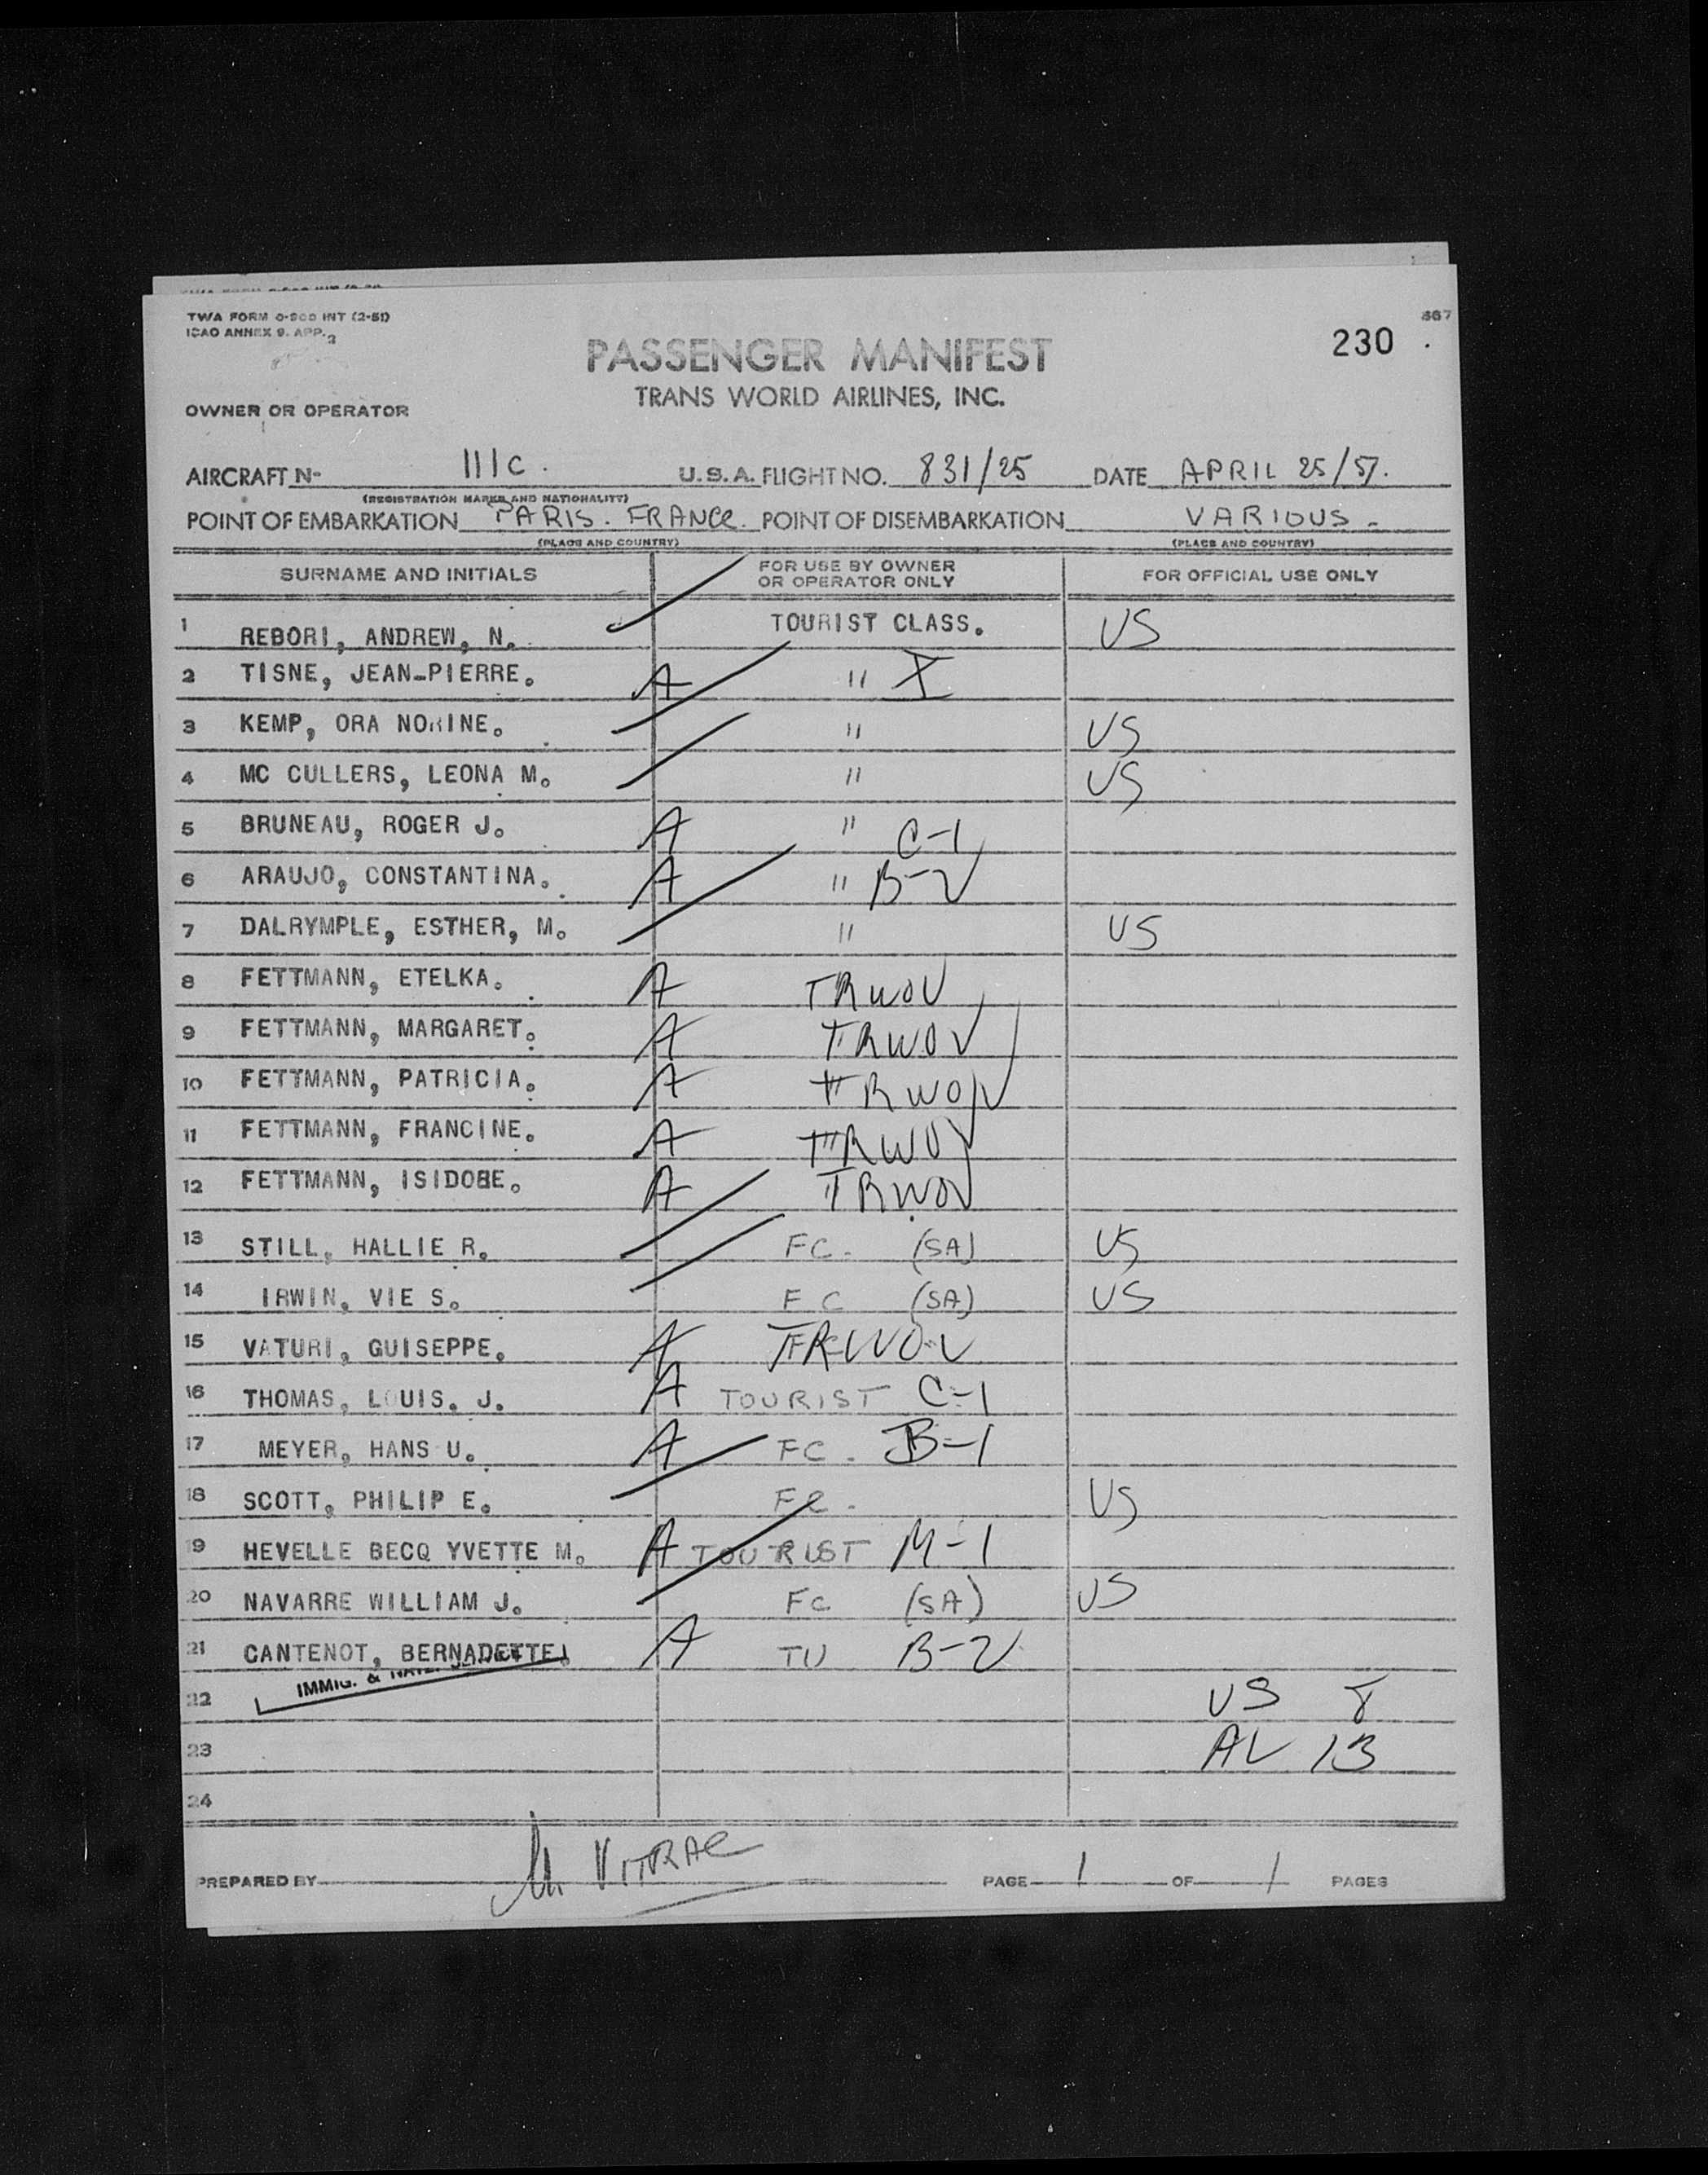 TWA FORM O-800 INT (2-51)
ICAO ANNEX 9. APP. 2
PASSENGER MANIFEST
230
TRANS WORLD AIRLINES, INC.
OWNER OR OPERATOR
AIRCRAFT N- 111C. U.S.A. FLIGHT NO. 831/25 DATE APRIL 25/57.
(REGISTRATION MARKS AND NATIONALITY)
POINT OF EMBARKATION PARIS. FRANCE. POINT OF DISEMBARKATION VARIOUS.
(PLACE AND COUNTRY) (PLACE AND COUNTRY)
SURNAME AND INITIALS FOR USE BY OWNER OR OPERATOR ONLY FOR OFFICIAL USE ONLY
1 REBORI, ANDREW, N. TOURIST CLASS. US
2 TISNE, JEAN-PIERRE. A " I
3 KEMP, ORA NORINE. " US
4 MC CULLERS, LEONA M. " US
5 BRUNEAU, ROGER J. A " C-1
6 ARAUJO, CONSTANTINA. A " B-2
7 DALRYMPLE, ESTHER, M. " US
8 FETTMANN, ETELKA. A TRWOV
9 FETTMANN, MARGARET. A TRWOV
10 FETTMANN, PATRICIA. A TRWOV
11 FETTMANN, FRANCINE. A TRWOV
12 FETTMANN, ISIDOBE. A TRWOV
13 STILL, HALLIE R. FC. (SA) US
14 IRWIN, VIE S. FC (SA) US
15 VATURI, GUISEPPE. A TRWOV
16 THOMAS, LOUIS. J. A TOURIST C-1
17 MEYER, HANS U. A FC. B-1
18 SCOTT, PHILIP E. FC. US
19 HEVELLE BECQ YVETTE M. A TOURIST M-1
20 NAVARRE WILLIAM J. FC. (SA) US
21 CANTENOT, BERNADETTE. A TU B-2
IMMIG. &
22 US 8
23 AL 13
24
PREPARED BY M. VITRAC PAGE 1 OF 1 PAGES